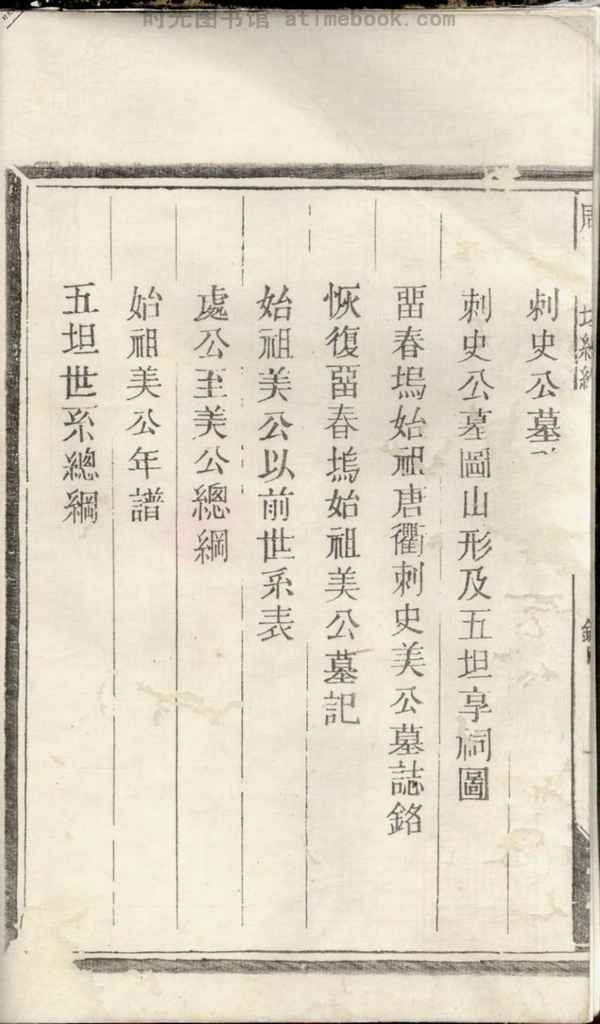 时光图书馆 atimebook.com
刺史公墓
刺史公墓圖山形及五坦享祠圖
畱春塢始祖唐衢刺史美公墓誌銘
恢復畱春塢始祖美公墓記
始祖美公以前世系表
處公至美公總綱
始祖美公年譜
五坦世系總綱